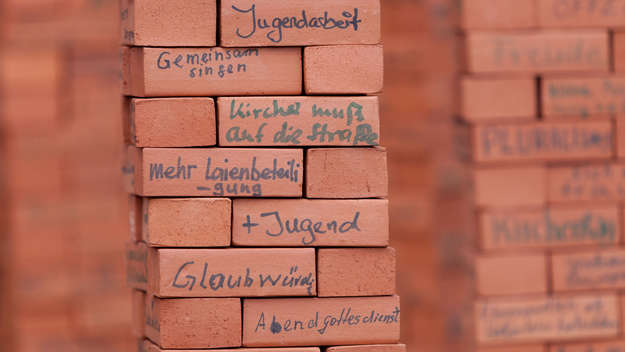 Jugendarbeit
Gemeinsam
singen
Kirche muß
auf die Straße
mehr Laienbeteili
-gung
+ Jugend
Glaubwürdig
Abendgottesdienst
Freude
PLURALISMUS